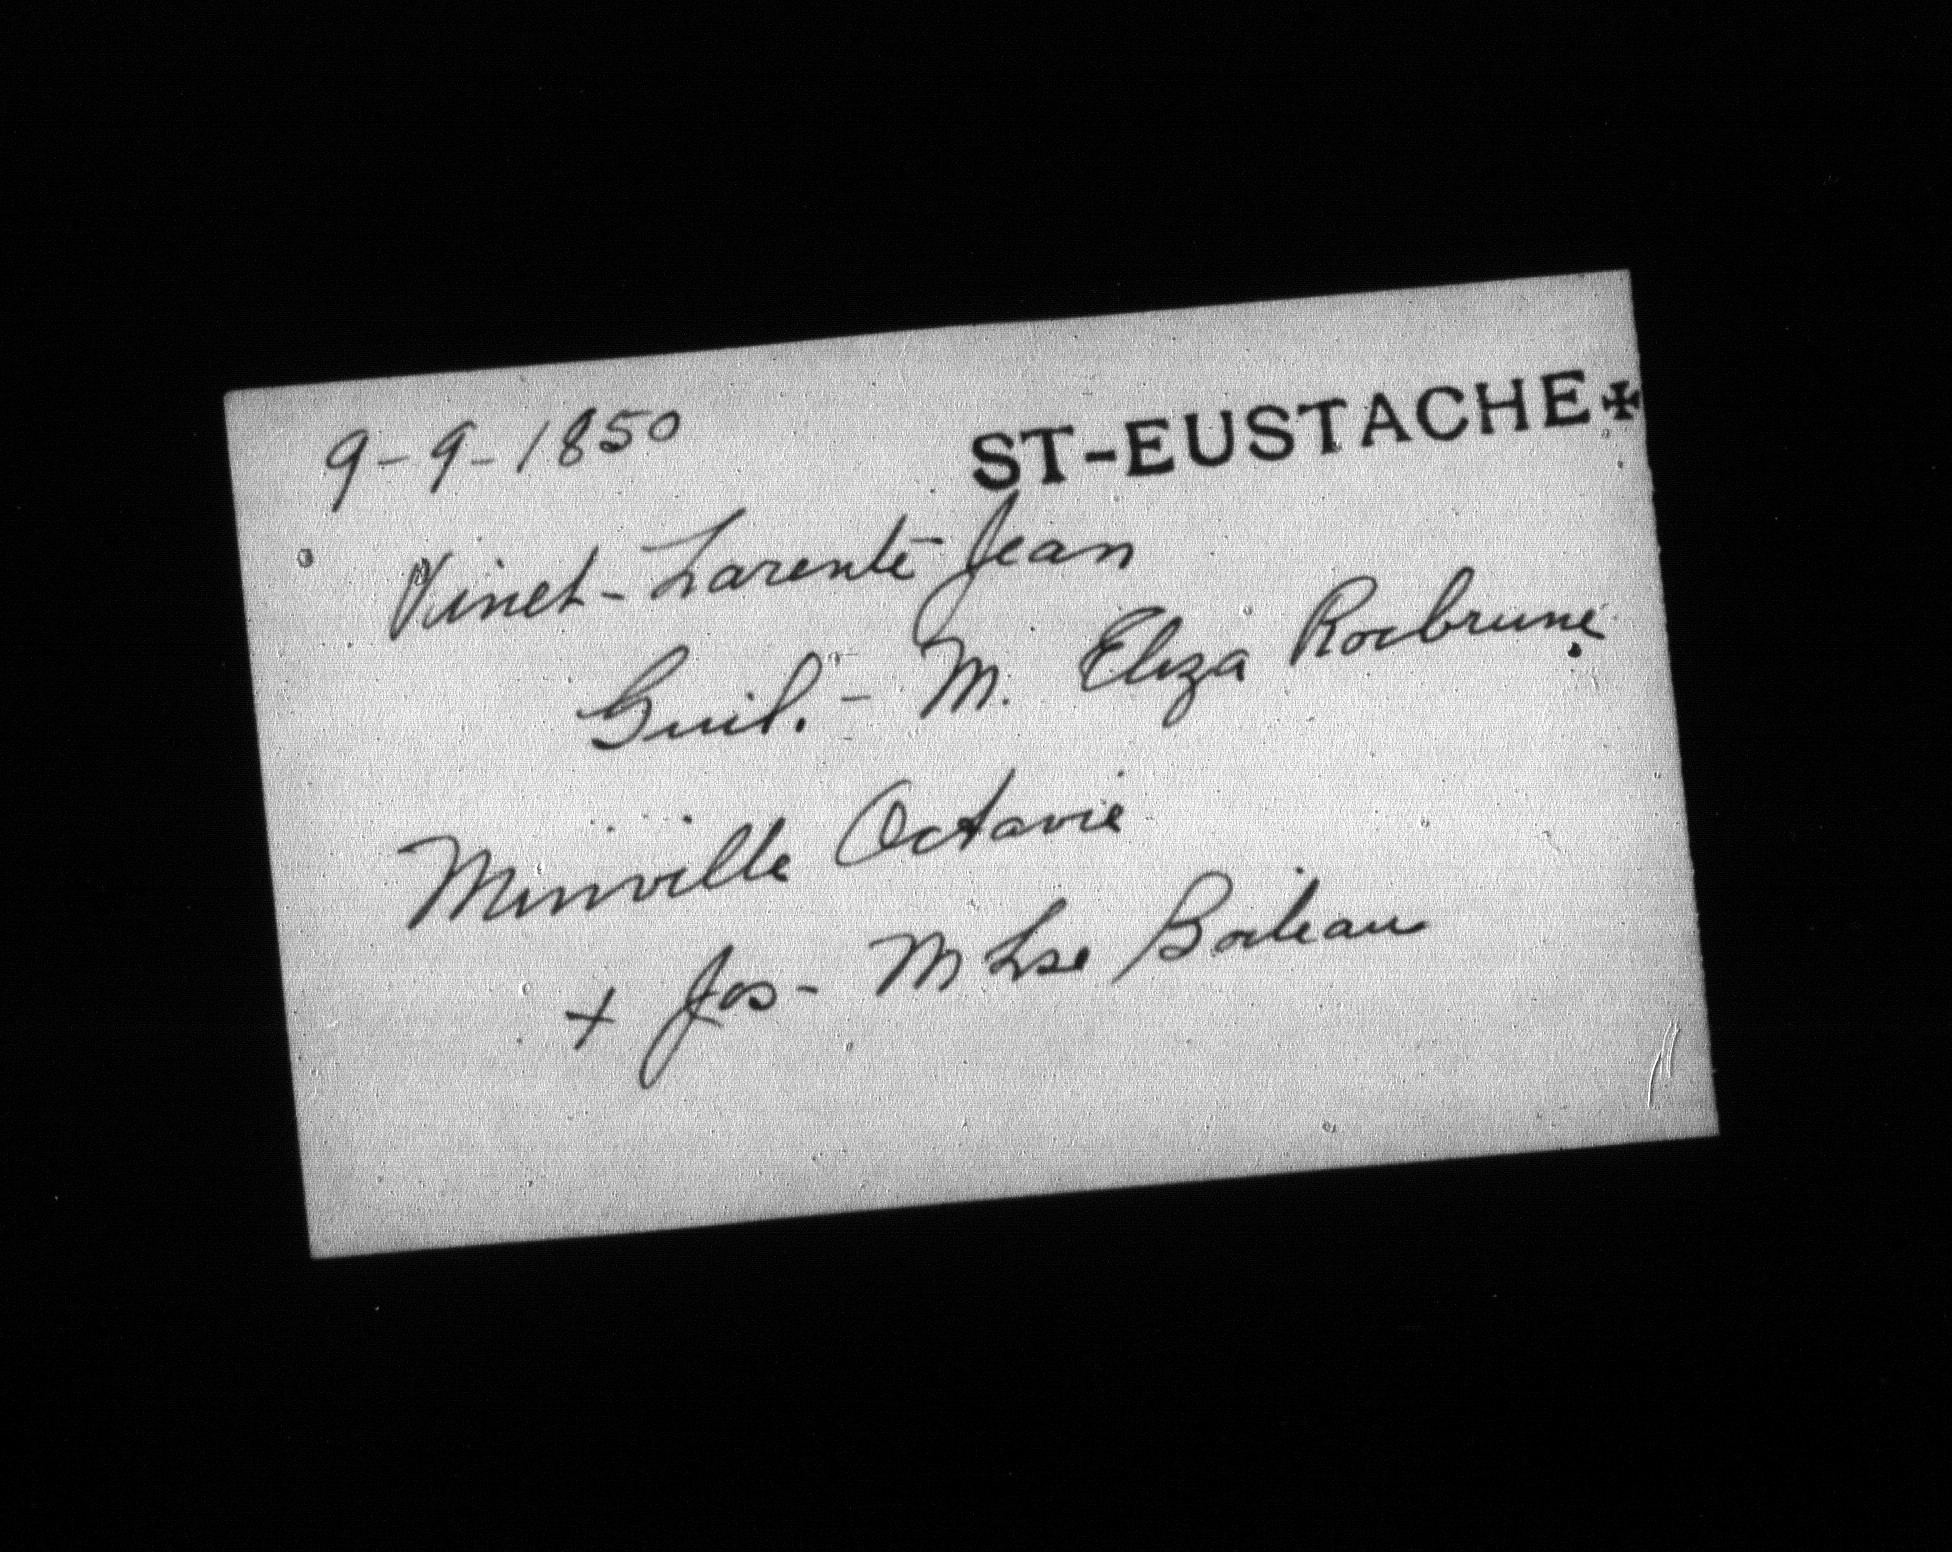 9-9-1850 ST-EUSTACHE✠
Vinet-Larente Jean
Guil. - M. Eliza Roebrune
Minville Octavie
+ Jos - M Lse Boileau